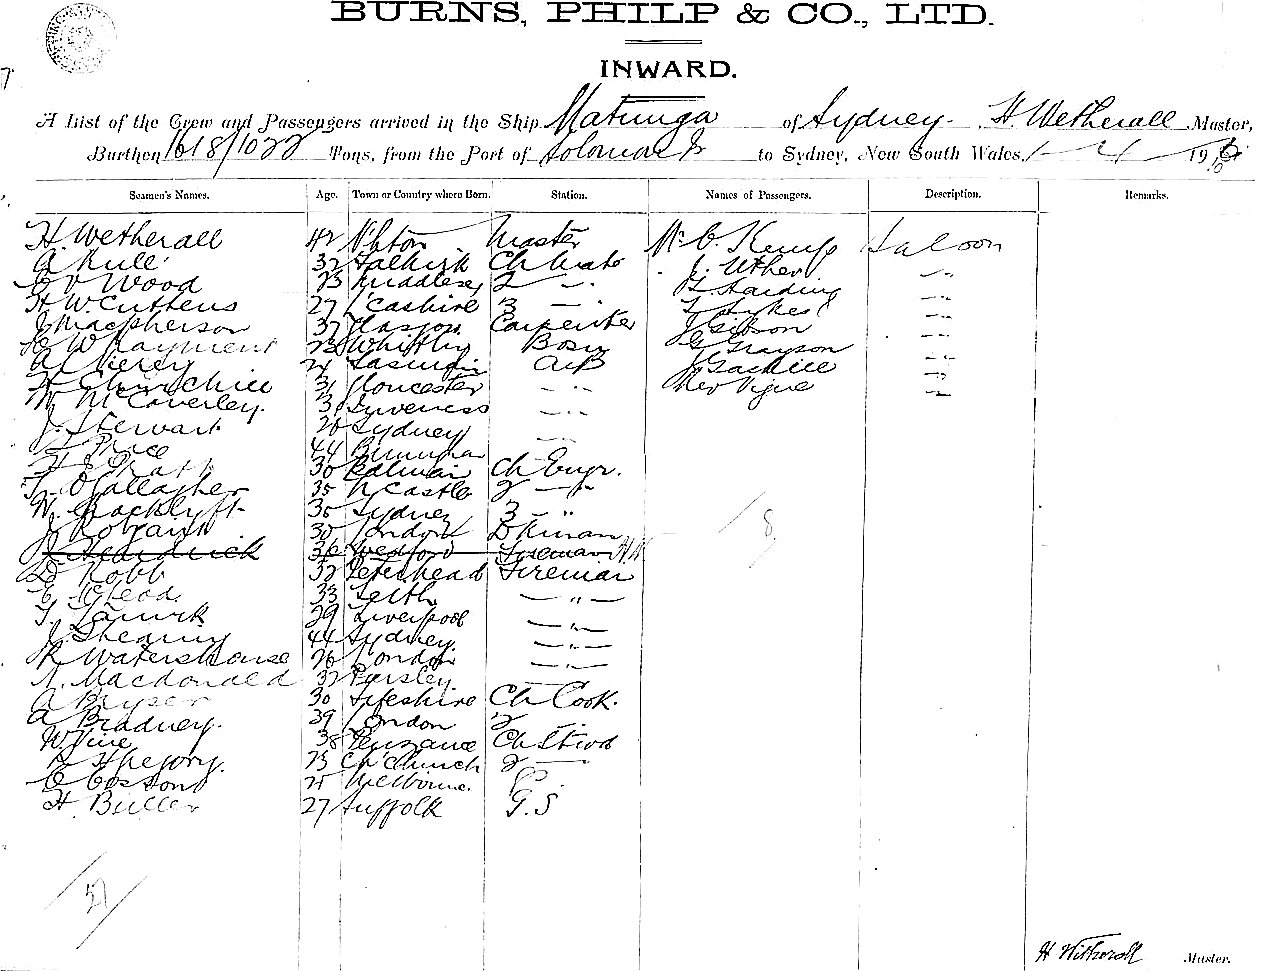 BURNS, PHILP & CO., LTD.
INWARD.
A List of the Crew and Passengers arrived in the Ship Matunga of Sydney. H. Wetherall Master,
Burthen 1618/1022 Tons, from the Port of Solomon Is to Sydney, New South Wales, 1 - 4 19
Seamen's Names. Age. Town or Country where Born. Station. Names of Passengers. Description. Remarks.
H. Wetherall 42 N'hton Master Mr C. Kemp Saloon
A 32 Falkirk Ch Mate J. Uther "
Wood 23 Middlesex 2 " Harding "
H. W. Cuttens 27 L'cashire 3 " Sykes "
J Macpherson 37 Glasgow Carpenter J Gibson "
W Rayment 23 Whitby Bosn G Grayson "
A 24 Tasmania AB J Gaskill "
H Churchill 31 Gloucester " Rev Vigue "
McCaverley. 31 Inverness "
J. Stewart 20 Sydney
Price 44 Birmingham "
H 30 Balmain Ch Engr.
T. O'Gallagher 35 N'Castle 2 "
W. 35 Sydney 3 "
J 30 London Dkman
J. Hendrick 36 Wexford Fireman
D Robb 32 Peterhead Fireman
McLeod. 33 Leith "
T. 29 Liverpool "
J. Shearing 44 Sydney. "
R Waterhouse 26 London "
A. Macdonald 32 Paisley
A Bryser 30 Fifeshire Ch Cook.
A Bradney. 39 London 2
W Vine 38 Penzance Ch Stwd
23 Ch'Church 2
C Cossons 25 Melbourne. P.
H. Buller 27 Suffolk G.S
8
H Wetherall Master.